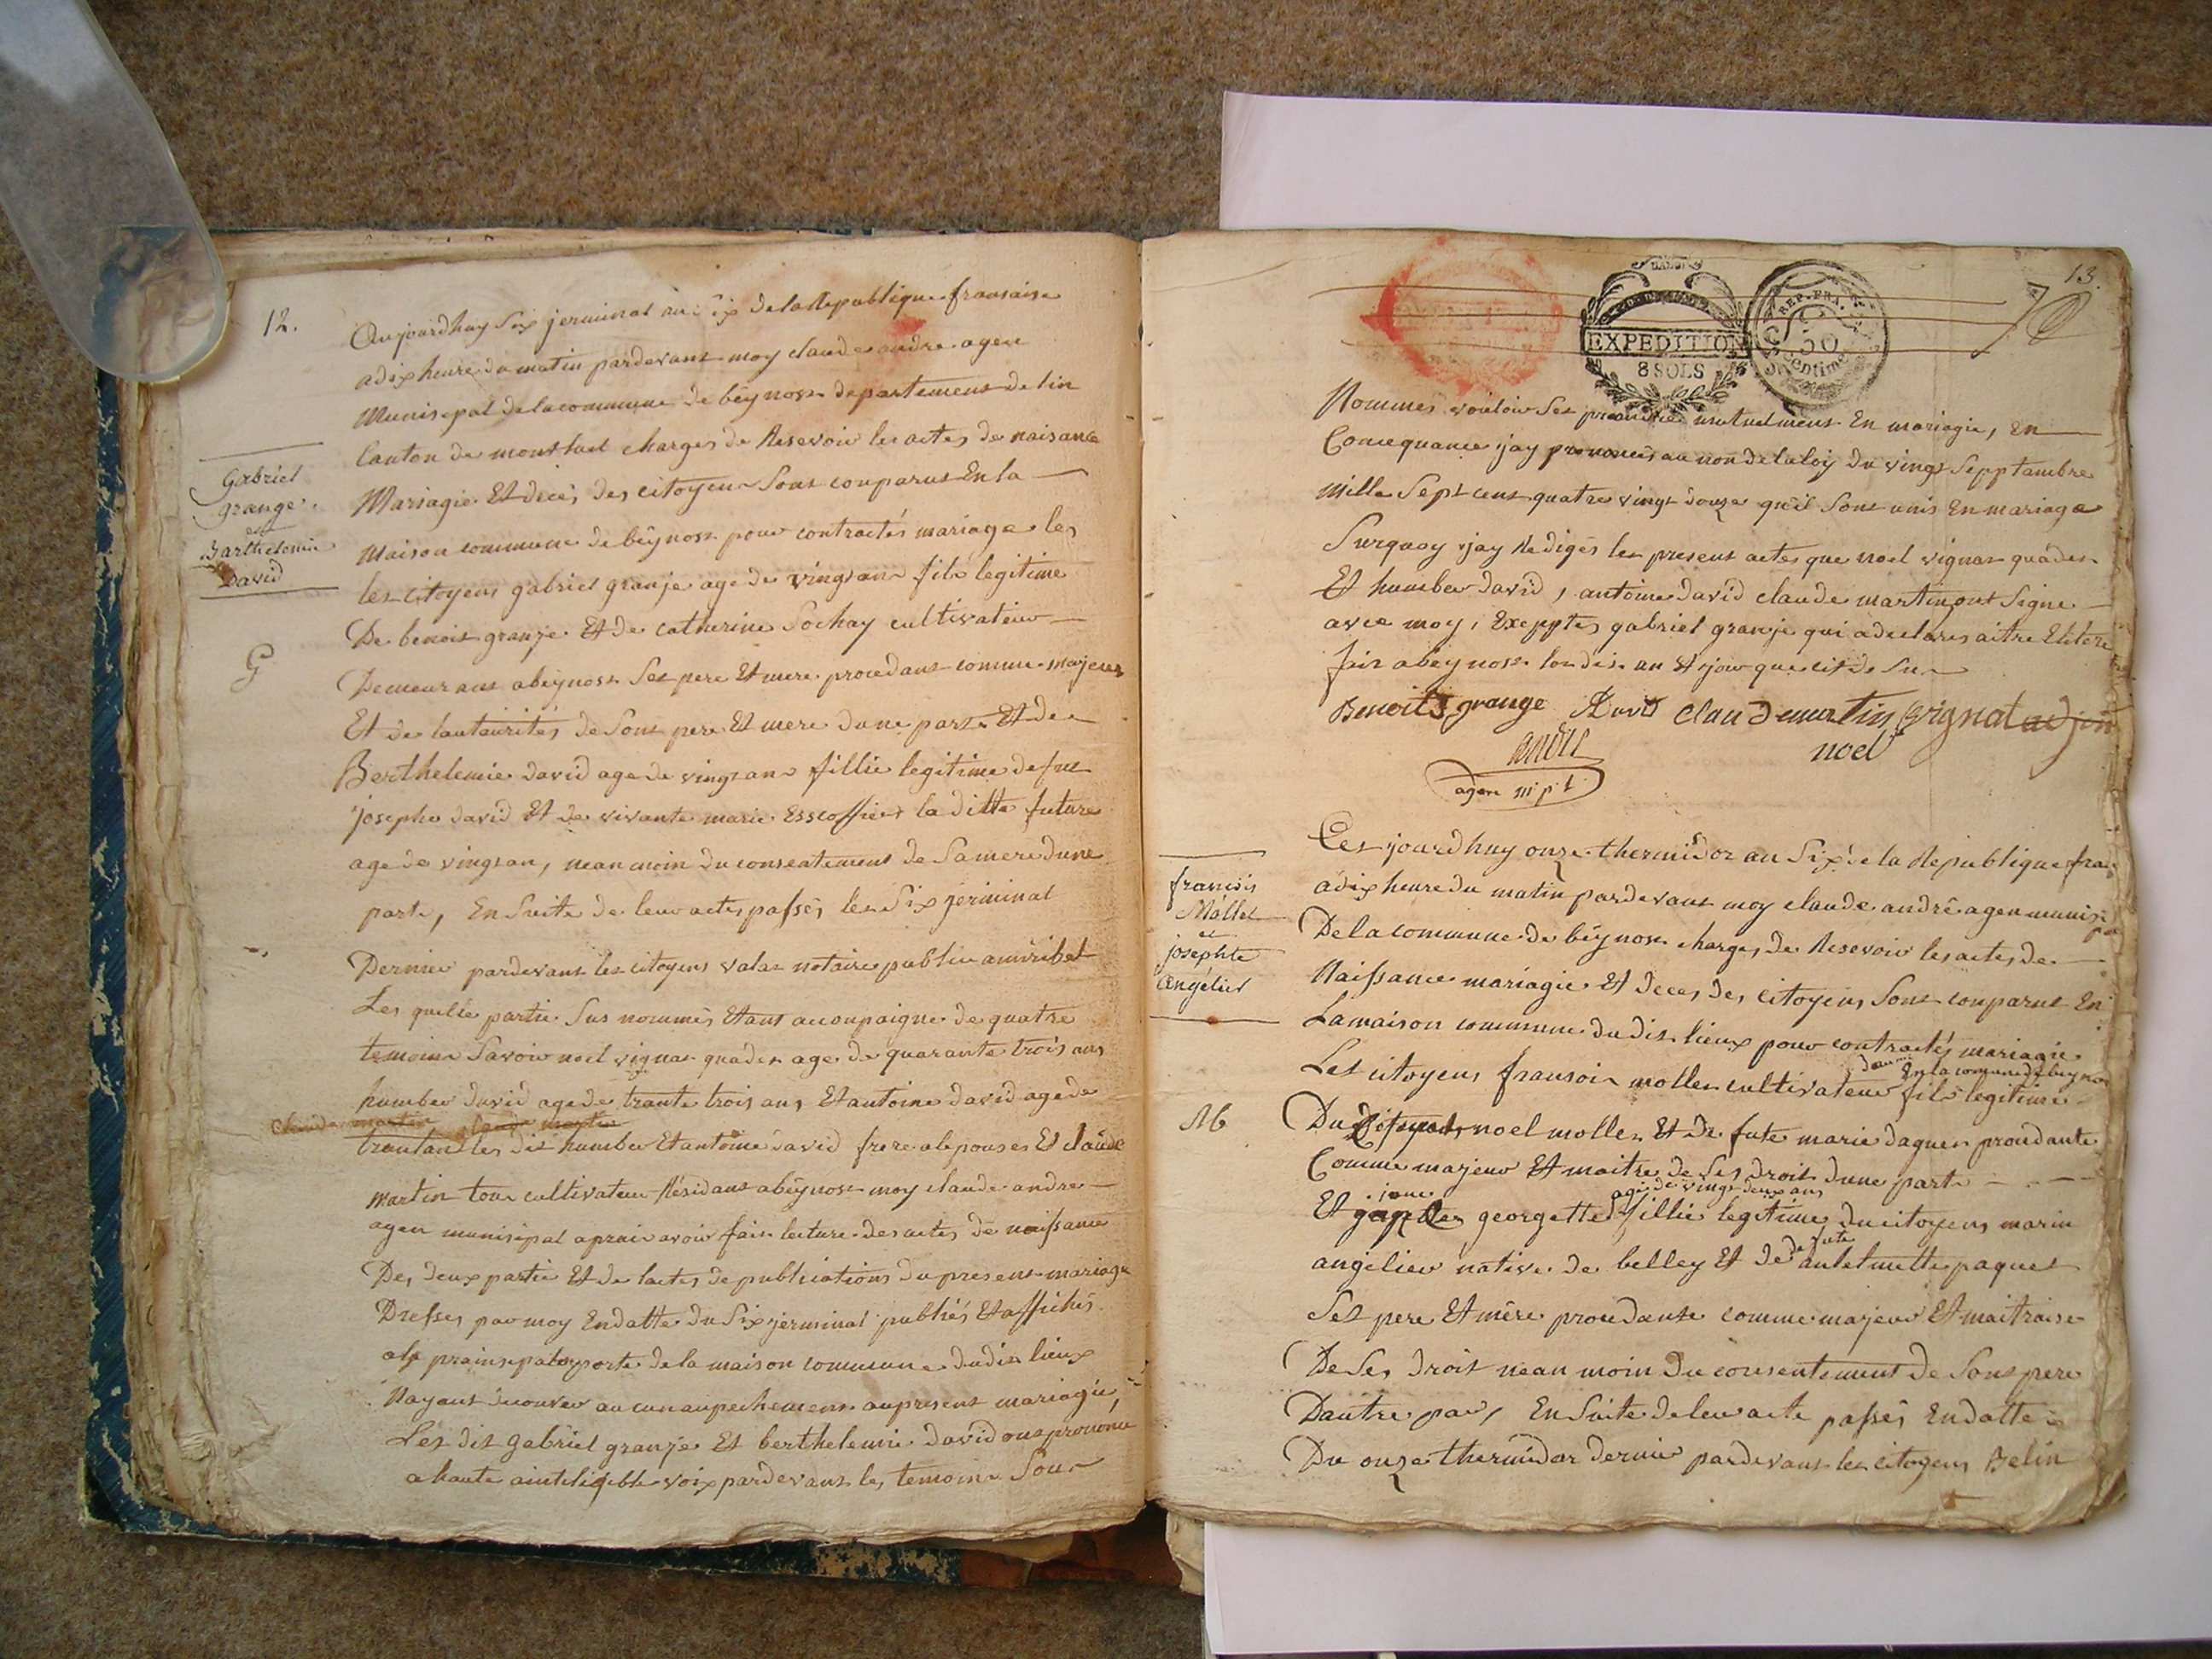 12.
Aujourdhuy Six jerminal an Six de la Republique fransaise
a dix heure du matin pardevant moy claude andre agen
Munisepal de la commune de beynost departement de lin
Canton de montluel charges de Resevoir les actes de naisance
Mariagie Et deces des citoyens Sont conparut En la
maison commune de beynost pour contractés mariage les
les citoyens gabriel granje age de vingt an fils legitime
De benoit granje Et de catherine Sochay cultivateur
Demeurant abeynost Ses pere Et mere procedant comme majeur
Et de lautaurités de Sont pere Et mere dune part Et de
Berthelemie david age de vingt an fillie legitime de fut
josephe david Et de vivante marie Esscoffier la ditte future
age de vingt an, nean moin du consentement de Sa mere dune
part, En Suite de leur actes passés les Six jerminal
Dernier pardevant les citoyens valat notaire public amiribel
Les quelle partie Sus nommés Etant acconpaigne de quatre
temoins Savoir noel vignat quadet age de quarante trois ans
humber david age de trante trois ans Et antoine david age de
trantans les dit humber Et antoine david frere alepouses Et claude
martin tous cultivateur Résidant abeynost moy claude andre
agen munisipal aprais avoir fait lecture des actes de naissance
Des deux partie Et de lactes de publications du present mariage
Dresses par moy En datte du Six jerminal publiés Et affichés
a la prainsipalle porte de la maison commune dudit lieux
Nayant decouver aucun anpechement aupresent mariagie,
Les dit gabriel granje Et berthelemie david ont prononce
a haute ainteligible voix pardevant les temoins Sous
Gabriel
grange
et
Barthelemie
David
G
13.
EXPEDITION
8 SOLS
REP. FRA.
50
Centimes
Nommés vouloir Ses prandre mutuelment En mariagie, En
Concequance jay prononcés au non de la loy du vingt Sepptambre
mille Sept cent quatre vingt douze quil Sont unis En mariage
Surquoy jay Redigés les present actes que noel vignat quadet
Et humber david, antoine david claude martin ont Signe
avec moy, Exepptes gabriel granje qui a declares
fait abeynost les dit an Et jour que cit de Sus
Benoit grange David claude martin vignat adjoin
noel
andre
agen m p l
Ces jourdhuy onze thermidor an Six de la Republique fran
a dix heure du matin pardevant moy claude andré agen munisi
pa
De la commune de beynost charges de Resevoir les actes de
Naissance mariagie Et deces des citoyens Sont conparut En
La maison commune du dit lieux pour contractés mariagie
En la commune de beynost
Les citoyens fransois mollet cultivateur fils legitime
Du Citoyent noel mollet Et de fute marie daguet procedante
Comme majeur Et maitre de Ses droit dune part
age de vingt deux ans
Et georgette fillie legitime du citoyens marin
de fute
angelier native de belley Et de antelmette paquet
Ses pere Et mère procedante comme majeur Et maitraise
De Ses droit nean moin du consentement de Sont pere
Dautre par, En Suite de leur acte passés En datte
Du onze thermidor dernier pardevant les citoyens Belin
francois
Mollet
et
josephte
angélier
M